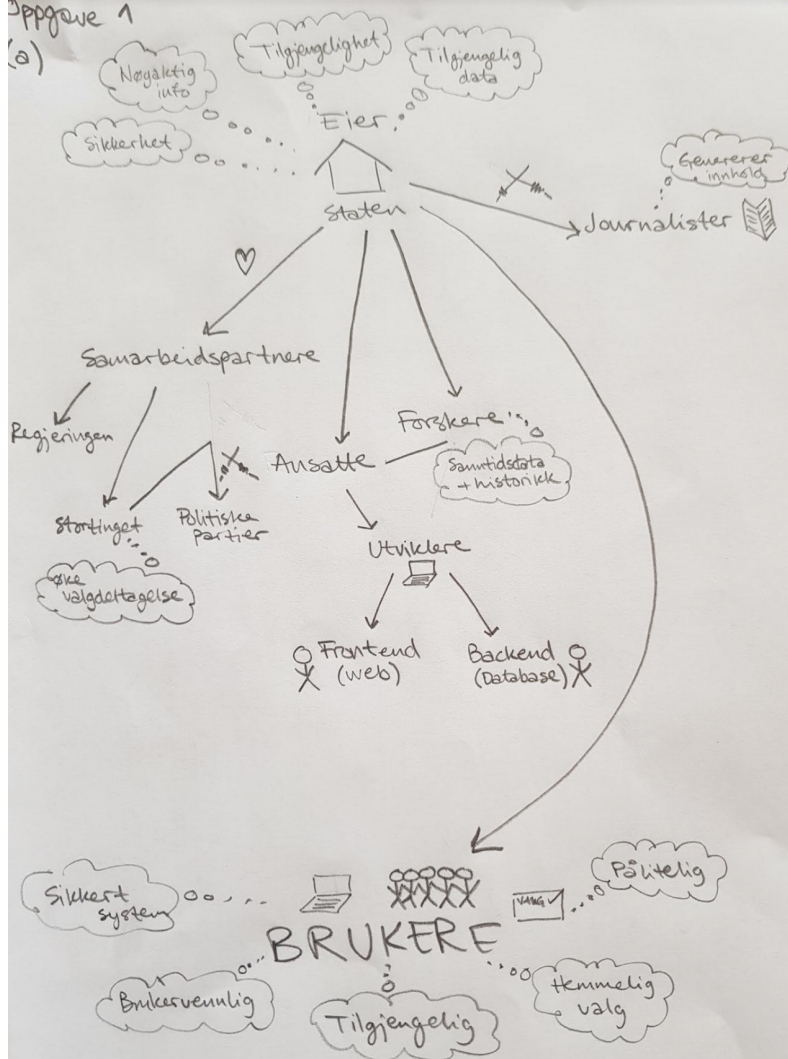 Oppgave 1
(a)
Tilgjengelighet
Tilgjengelig
data
Nøyaktig
info
Sikkerhet
Eier
Staten
Genererer
innhold
Journalister
Samarbeidspartnere
Regjeringen
Stortinget
Politiske
partier
øke
valgdeltagelse
Ansatte
Forskere
Sanntidsdata
+ historikk
Utviklere
Frontend
(web)
Backend
(Database)
Sikkert
system
VALG
Pålitelig
BRUKERE
Brukervennlig
Tilgjengelig
Hemmelig
valg